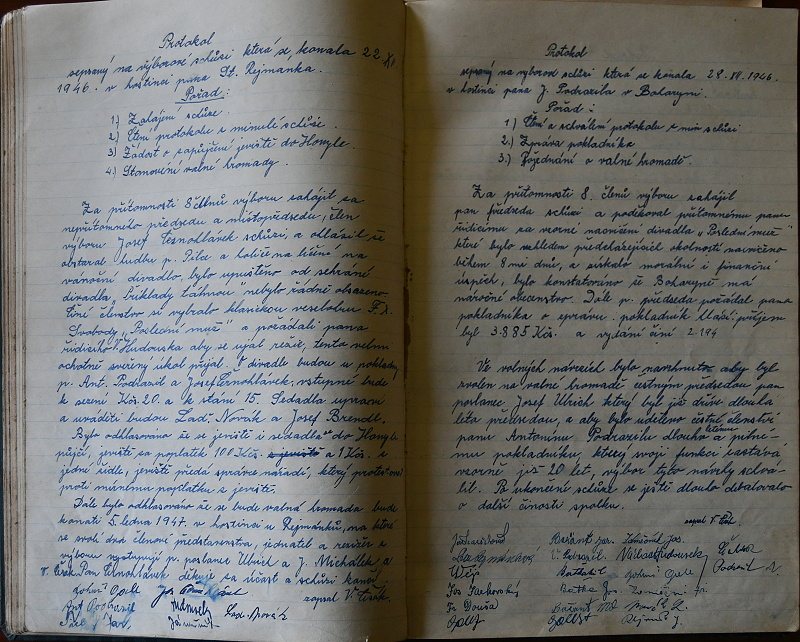 Protokol
sepsaný na výborové schůzi která se konala 22. XI
1946. v hostinci pana St. Rejmánka.
Pořad:
1) Zahájení schůze.
2) Čtení protokolu s minulé schůse.
3) Žádost o zapůjčení jeviště do Honyle.
4) Stanovení valné hromady.
Za přítomnosti 8 členů výboru zahájil za
nepřítomného předsedu a místopředsedu, člen
výboru Josef Černohlávek schůzi, a ohlásil že
obstaral hudbu p. a na
vánoční divadlo, bylo upuštěno od sehrání
divadla, "Příklady táhnou" nebylo řádně obsazeno
členstvo si vybralo klasickou veselohru F. X.
Svobody "Poslední muž" a požádali pana
řídícího V. Hudourka aby se ujal režie, tento velmi
ochotně svěřený úkol přijal. V divadle budou u pokladny
p. Ant. Podrazil a Josef Černohlávek, vstupné bude
k sezení Kčs. 20. a k stání 15. Sedadla upraví
a uváděti budou Lad. Novák a Josef Brendl.
Bylo odhlasováno že se jeviště i sedadla do Honyle
půjčí, jeviště za poplatek 100 Kčs. a 1 Kčs. s
jedné židle, jeviště předá správce nářadí, který protestoval
proti mírnému poplatku z jeviště.
Dále bylo odhlasováno že se bude valná hromada bude
konati 5. ledna 1947. v hostinci u Rejmánků, na které
se zvolí dva členové představenstva, jednatel a revizor z
výboru vystupují p. poslanec Ulrich a J. Michálek, a
Pan Černohlávek děkuje za účast a schůzi končí.
zapsal V. Čížek.
Lad. Novák
Protokol
sepsaný na výborové schůzi která se konala 28. XII. 1946.
v hostinci pana J. Podrazila v Boharyni.
Pořad:
1) Čtení a schválení protokolu s min schůzi
2.) Zpráva pokladníka
3.) Pojednání o valné hromadě.
Za přítomnosti 8. členů výboru zahájil
pan předseda schůzi a poděkoval přítomnému panu
řídícímu za vzorné nacvičení divadla "Poslední muž"
které bylo vzhledem předcházejících okolností nacvičeno
během 8 mi dnů, a získalo morální i finanční
úspěch, bylo konstatováno že Boharyně má
náročné obecenstvo. Dále p. předseda požádal pana
pokladníka o zprávu. pokladník hlásí: příjem
byl 3.885 Kčs. a vydání činí 2.194
Ve volných návrzích bylo navrhnuto, aby byl
zvolen na valné hromadě čestným předsedou pan
poslanec Josef Ulrich který byl již dříve dlouhá
léta předsedou, a aby bylo uděleno čestné členství
panu Antonínu Podrazilu dlouholetému a pilné-
mu pokladníku, který svoji funkci zastává
vzorně již 20 let, výbor tyto návrhy schvá-
lil. Po ukončení schůze se ještě dlouho debatovalo
o další činosti spolku.
zapsal V. Čížek.
Fr. Douša